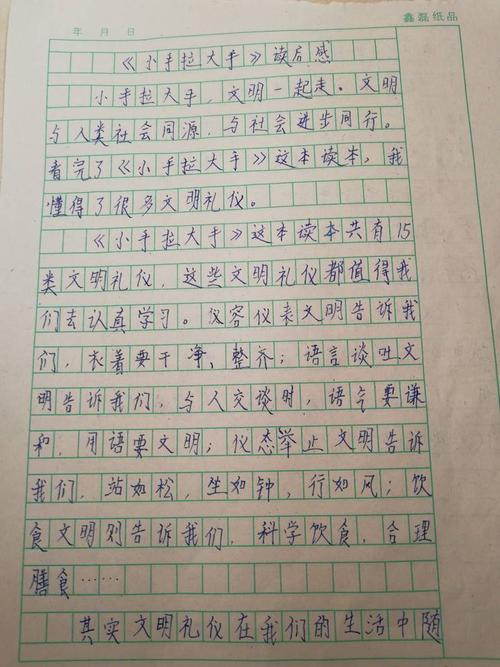 鑫磊纸品
年 月 日
《小手拉大手》读后感
小手拉大手，文明一起走。文明
与人类社会同源，与社会进步同行。
看完了《小手拉大手》这本读本，我
懂得了很多文明礼仪。
《小手拉大手》这本读本共有15
类文明礼仪，这些文明礼仪都值得我
们去认真学习。仪容仪表文明告诉我
们，衣着要干净、整齐；语言谈吐文
明告诉我们，与人交谈时，语气要谦
和，用语要文明；仪态举止文明告诉
我们，站如松，坐如钟，行如风；饮
食文明则告诉我们，科学饮食，合理
膳食……
其实文明礼仪在我们的生活中随